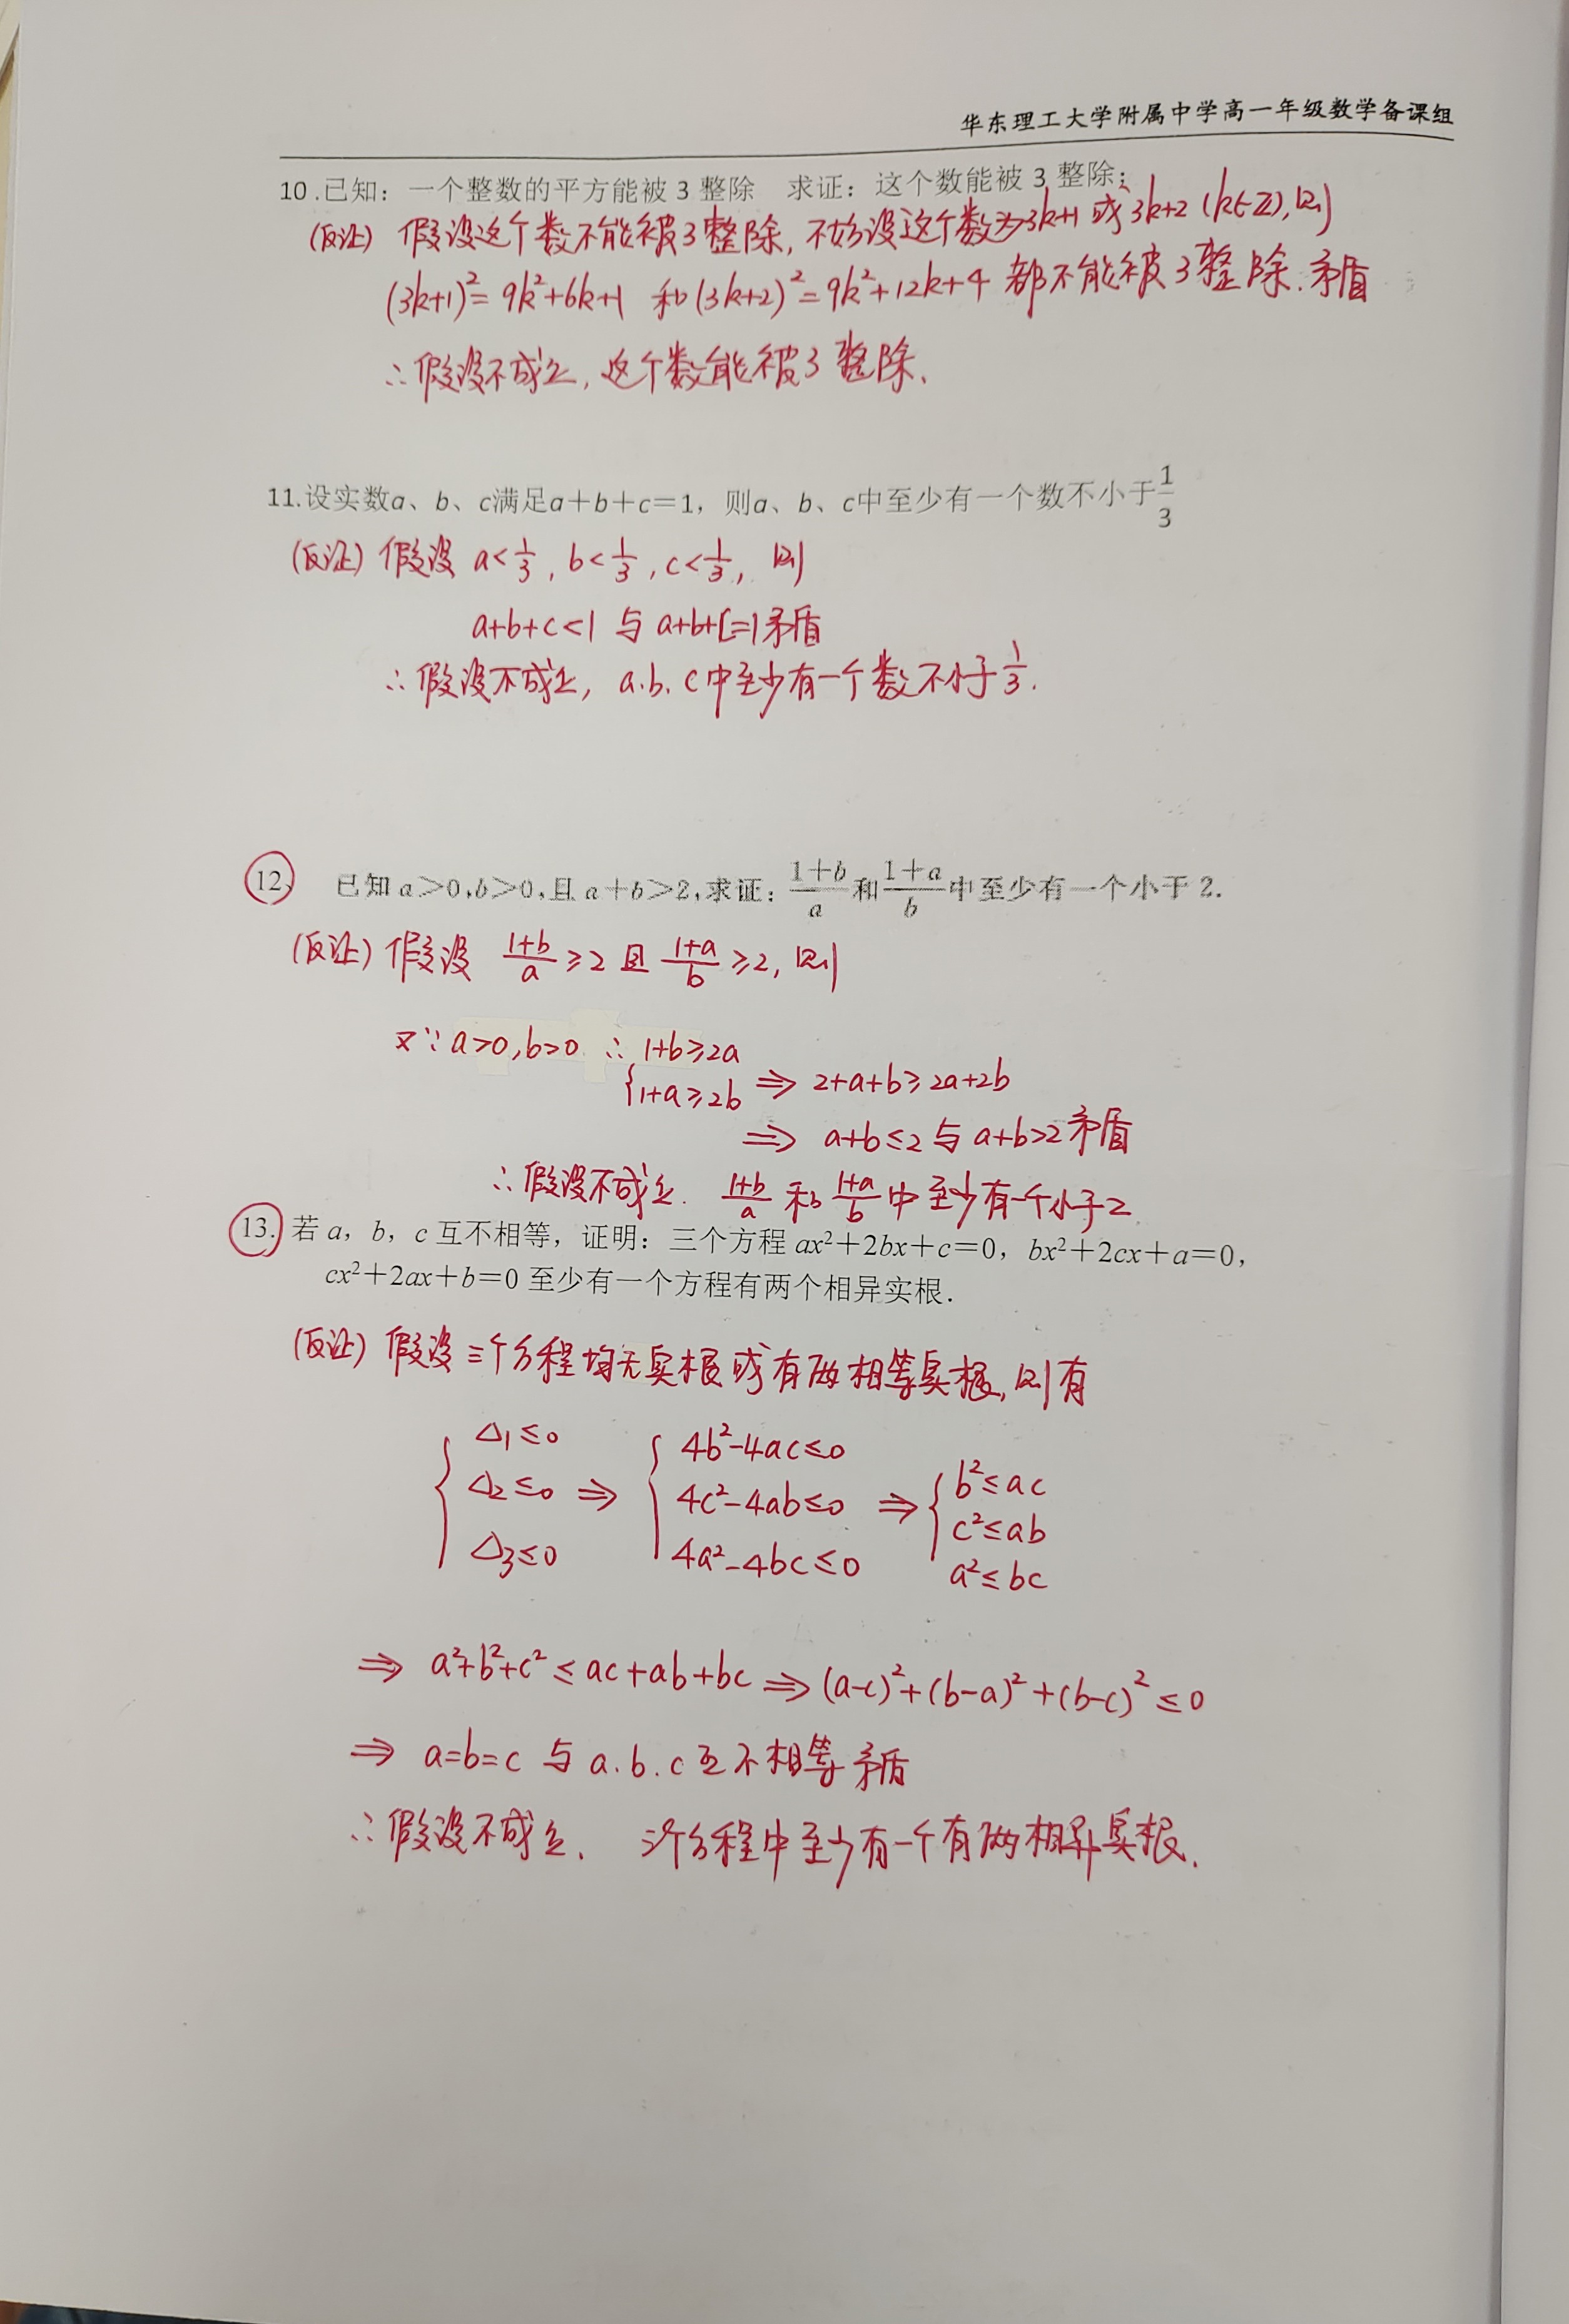 华东理工大学附属中学高一年级数学备课组
10.已知：一个整数的平方能被 3 整除 求证：这个数能被 3 整除；
(反证) 假设这个数不能被3整除, 不妨设这个数为3k+1 或 3k+2 (k∈Z), 则
(3k+1)²=9k²+6k+1 和(3k+2)²=9k²+12k+4 都不能被3整除.矛盾
∴假设不成立, 这个数能被3整除.
11.设实数a、b、c满足a＋b＋c＝1，则a、b、c中至少有一个数不小于1/3
(反证) 假设 a<1/3, b<1/3, c<1/3, 则
a+b+c<1 与 a+b+c=1矛盾
∴假设不成立, a.b.c中至少有一个数不小于1/3.
12、 已知 a＞0,b＞0,且 a＋b＞2,求证：(1＋b)/a 和 (1＋a)/b 中至少有一个小于 2.
(反证) 假设 (1+b)/a ≥2 且 (1+a)/b ≥2, 则
又∵a>0,b>0 ∴ {1+b≥2a
1+a≥2b ⇒ 2+a+b≥2a+2b
⇒ a+b≤2 与 a+b>2 矛盾
∴假设不成立. (1+b)/a 和 (1+a)/b 中至少有一个小于2
13. 若 a，b，c 互不相等，证明：三个方程 ax²＋2bx＋c＝0，bx²＋2cx＋a＝0，
cx²＋2ax＋b＝0 至少有一个方程有两个相异实根．
(反证) 假设三个方程均无实根或有两相等实根, 则有
{Δ₁≤0 {4b²-4ac≤0 {b²≤ac
Δ₂≤0 ⇒ 4c²-4ab≤0 ⇒ c²≤ab
Δ₃≤0 4a²-4bc≤0 a²≤bc
⇒ a²+b²+c²≤ac+ab+bc ⇒ (a-c)²+(b-a)²+(b-c)²≤0
⇒ a=b=c 与 a.b.c互不相等矛盾
∴假设不成立. 三个方程中至少有一个有两相异实根.